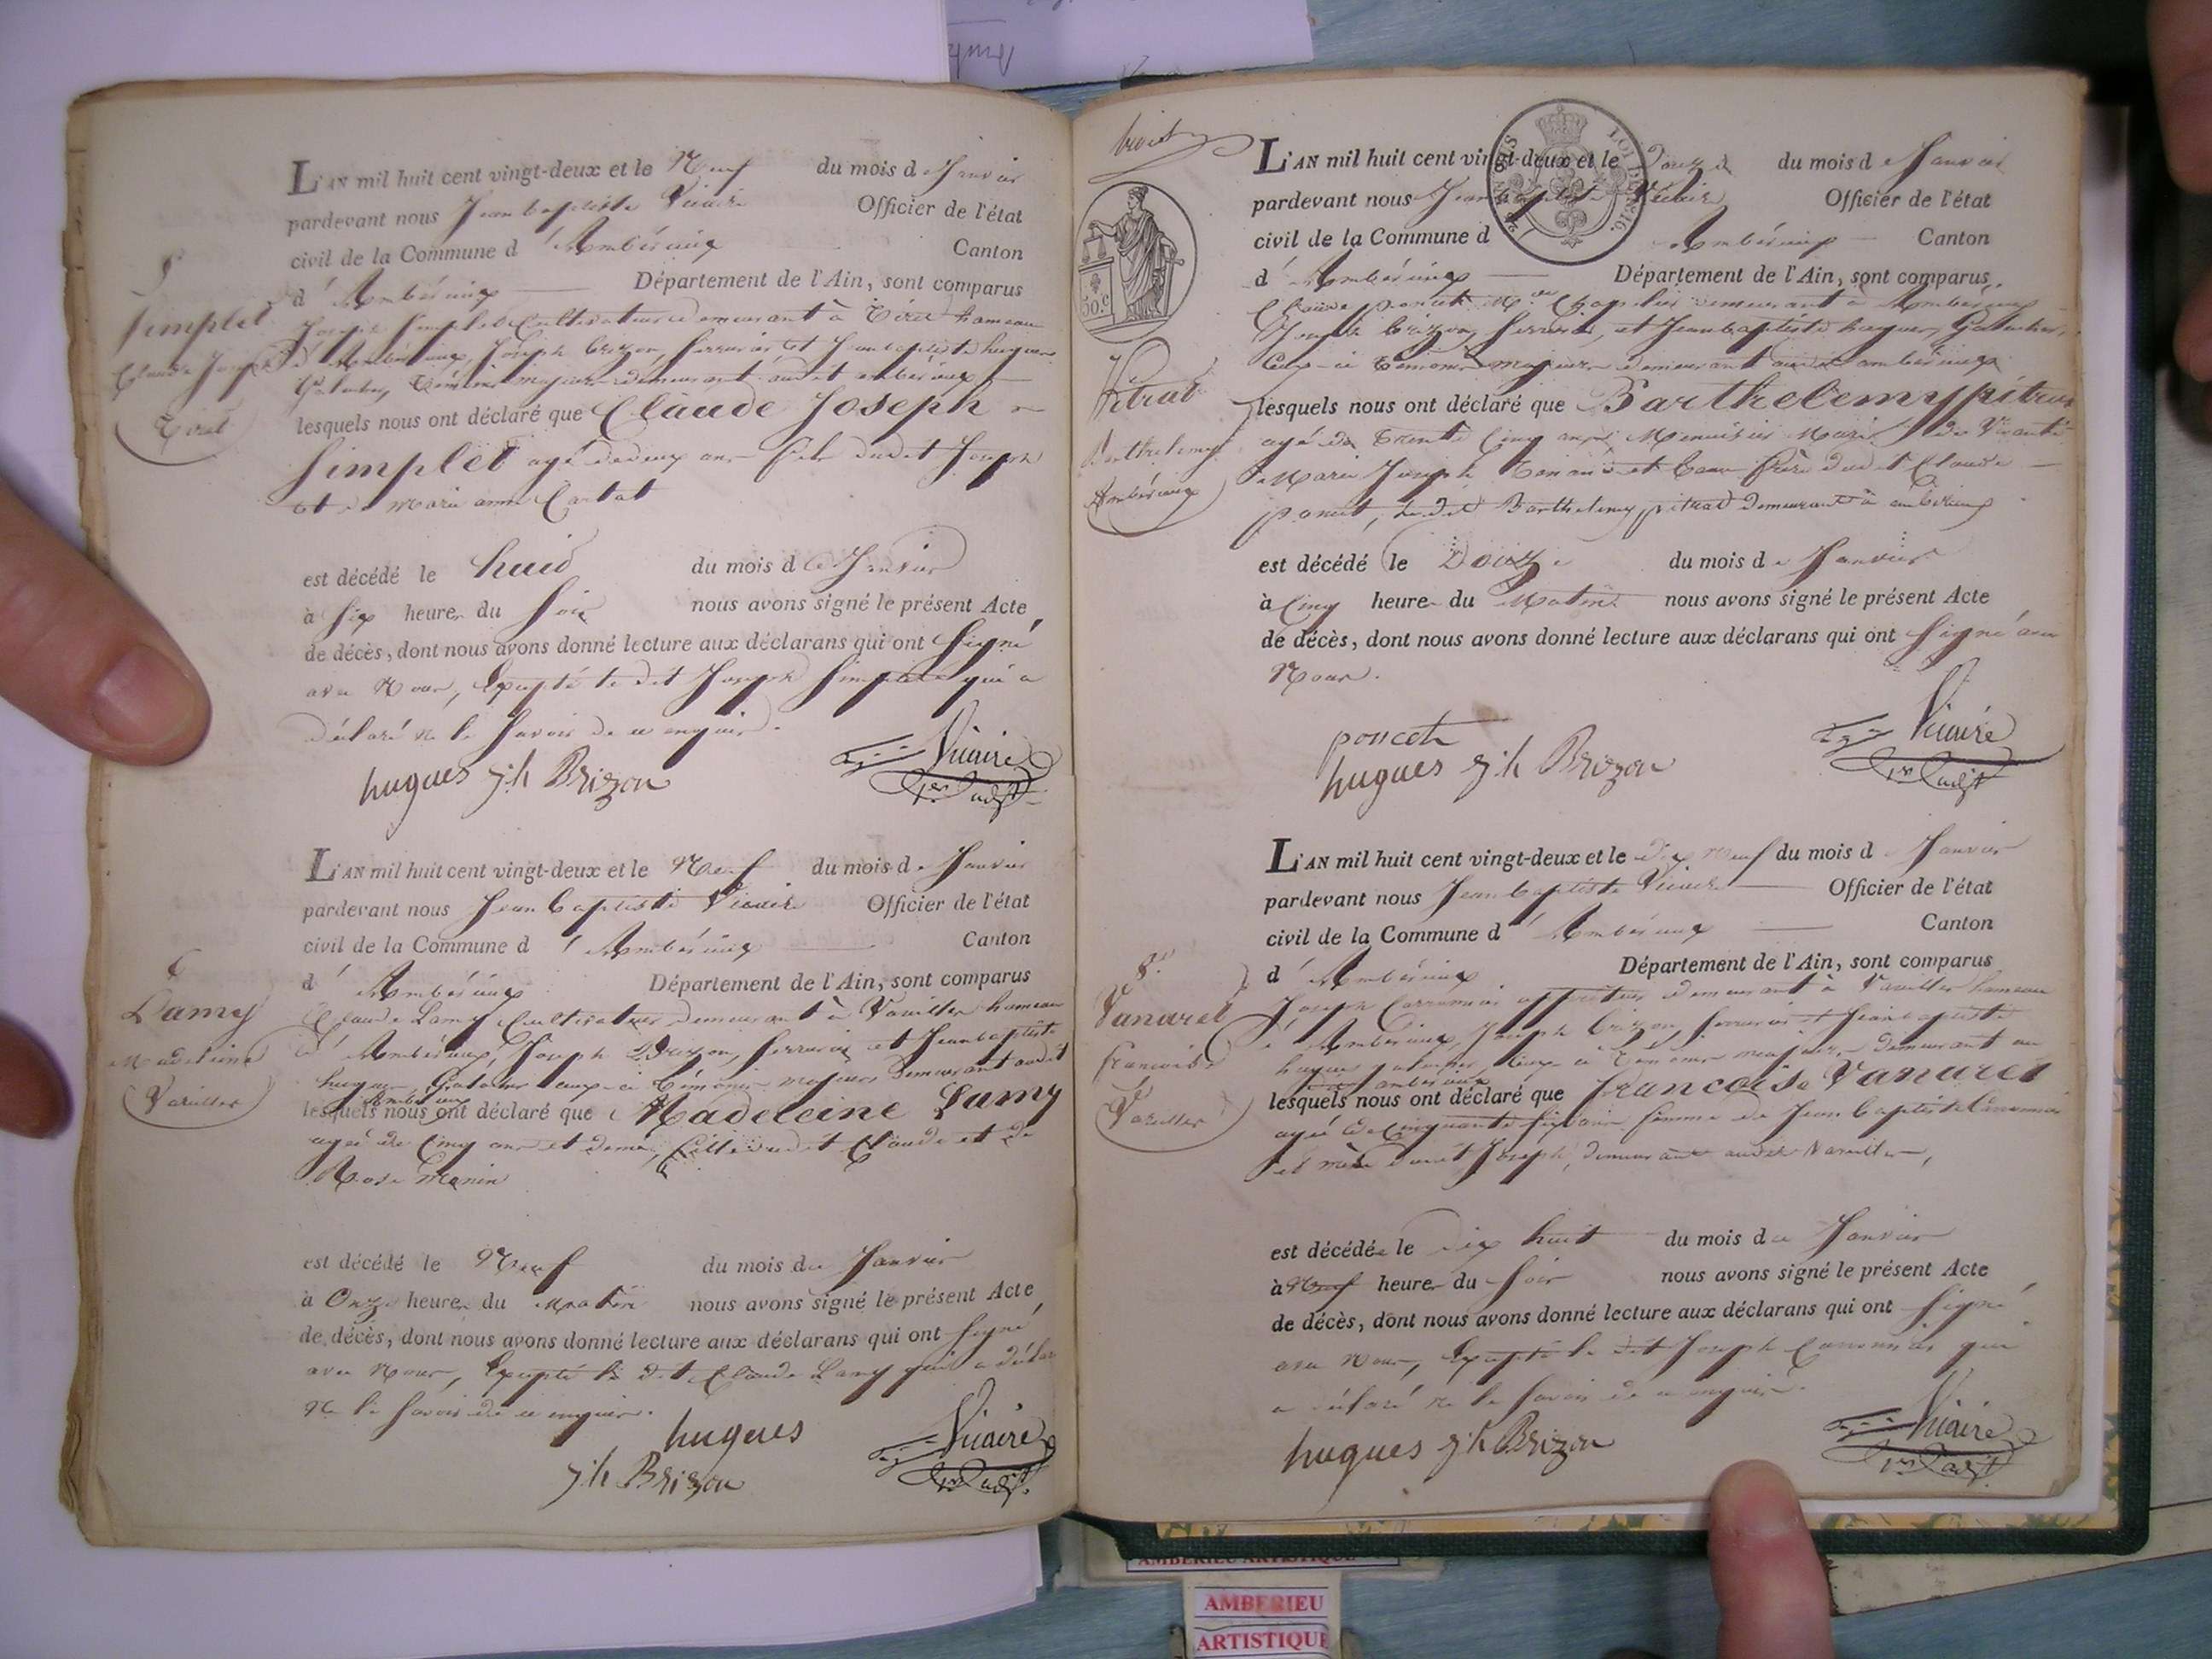 L'AN mil huit cent vingt-deux et le Neuf du mois de Janvier
pardevant nous Jean baptiste Vicaire Officier de l'état
civil de la Commune d'Ambérieux Canton
d'Ambérieux Département de l'Ain, sont comparus
Joseph Simplet Cultivateur demeurant à Tiret hameau
d'Ambérieux, Joseph brizon, serrurier et Jean baptiste hugues
témoins majeurs demeurant audit amberieux
lesquels nous ont déclaré que Claude Joseph
Simplet agé de deux ans fils dudit Joseph
et de Marie anne
5
Simplet
Claude Joseph
Tiret
est décédé le huit du mois de Janvier
à Six heures du Soir nous avons signé le présent Acte
de décès, dont nous avons donné lecture aux déclarans qui ont Signé
avec Nous, Excepté le dit Joseph Simplet qui a
déclaré ne le Savoir de ce enquis.
hugues jh Brizon Vicaire
1er adjt
L'AN mil huit cent vingt-deux et le Neuf du mois de Janvier
pardevant nous Jean baptiste Vicaire Officier de l'état
civil de la Commune d'Ambérieux Canton
d'Ambérieux Département de l'Ain, sont comparus
Claude Lamy Cultivateur demeurant à Vareilles hameau
d'Ambérieux, Joseph Brizon, serrurier et Jean baptiste
hugues, ceux-ci témoins majeurs demeurant audit
ambérieux
lesquels nous ont déclaré que Madeleine Lamy
agée de Cinq ans et demi, fille dudit Claude et de
Rose
6
Lamy
Madeleine
Vareilles
est décédé le Neuf du mois de Janvier
à Onze heures du Matin nous avons signé le présent Acte
de décès, dont nous avons donné lecture aux déclarans qui ont Signé
avec Nous, Excepté le dit Claude Lamy qui a déclaré
ne le Savoir de ce enquis.
hugues Vicaire
jh Brizon 1er adjt
L'AN mil huit cent vingt-deux et le Douze du mois de Janvier
pardevant nous Jean baptiste Vicaire Officier de l'état
civil de la Commune d'Ambérieux Canton
d'Ambérieux Département de l'Ain, sont comparus
Claude poncet Md Chapelier demeurant à Ambérieux
Joseph brizon, Serrurier, et Jean baptiste hugues,
Ceux-ci témoins majeurs demeurant audit ambérieux
lesquels nous ont déclaré que Barthelemy pitrat
agé de trente Cinq ans, Menuisier Mari de Vivante
Marie Joseph et beau frère dudit Claude
poncet, Le dit Barthelemy pitrat demeurant à ambérieux
50.c
7
Pitrat
Barthelemy
Ambérieux
est décédé le Douze du mois de Janvier
à Cinq heures du Matin nous avons signé le présent Acte
de décès, dont nous avons donné lecture aux déclarans qui ont Signé avec
Nous.
poncet Vicaire
hugues jh Brizon 1er adjt
L'AN mil huit cent vingt-deux et le dix neuf du mois de Janvier
pardevant nous Jean baptiste Vicaire Officier de l'état
civil de la Commune d'Ambérieux Canton
d'Ambérieux Département de l'Ain, sont comparus
Joseph demeurant à Vareilles hameau
d'Ambérieux, Joseph brizon, serrurier et Jean baptiste
hugues ceux-ci témoins majeurs demeurant au
dit ambérieux
lesquels nous ont déclaré que francoise Vanaret
agée de Cinquante Six ans femme de Jean baptiste
et mère dudit Joseph, demeurant audit Vareilles,
8.
Vanaret
francoise
Vareilles
est décédée le dix huit du mois de Janvier
à Neuf heures du Soir nous avons signé le présent Acte
de décès, dont nous avons donné lecture aux déclarans qui ont Signé
avec Nous, Excepté le dit Joseph qui
a déclaré ne le Savoir de ce enquis.
hugues jh Brizon Vicaire
1er adjt
AMBERIEU ARTISTIQUE
AMBERIEU
ARTISTIQUE